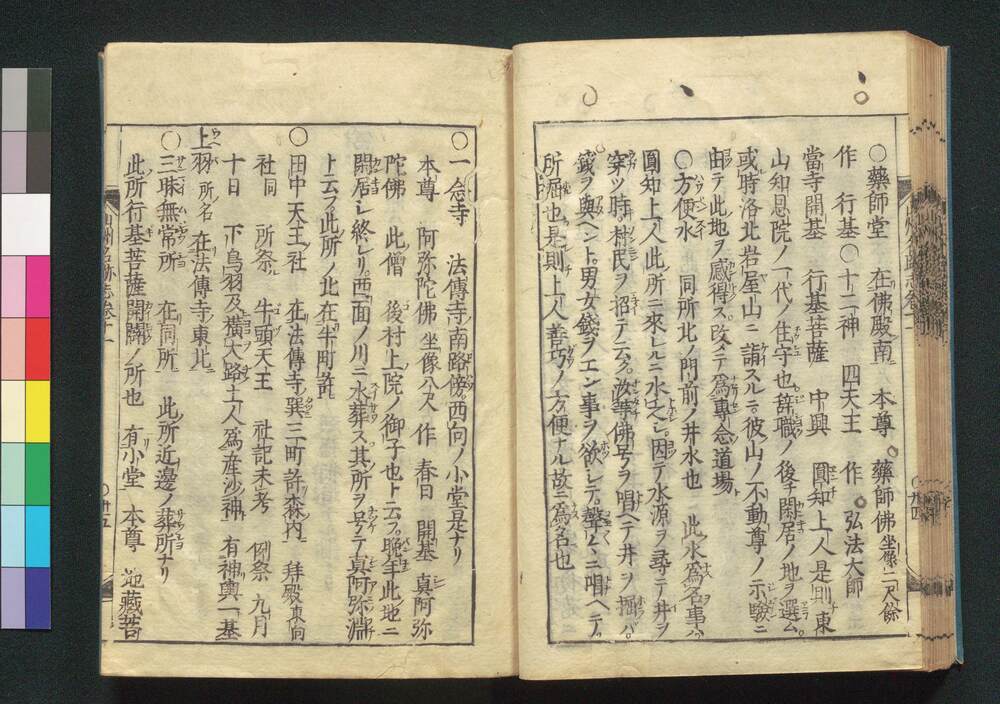 〇藥師堂 在佛殿南 本尊 藥師佛坐像二尺餘
作 行基〇十二神 四天王 作 弘法大師
當寺開基 行基菩薩 中興 圓知上人是則東
山知恩院ノ一代ノ住守也辞職ノ後チ閑居ノ地ヲ選ム
或時洛北岩屋山ニ詣スルニ彼山ノ不動尊ノ示験ニ
由テ此地ヲ感得ス改メテ爲專念道場
〇方便水 同所北ノ門前ノ井水也 此水爲名事ハ
圓知上人此所ニ來レルニ水乏シ因テ水源ヲ尋テ井ヲ
穿ツ時村民ヲ招テ云ク汝等佛号ヲ唱ヘテ井ヲ掘ハ
錢ヲ與ヘント男女錢ヲエン事ヲ欲シテ聲々ニ唱ヘテ
所掘也是則上人善巧ノ方便ナル故ニ爲名也
〇一念寺 法傳寺南路傍西向ノ小堂是ナリ
本尊 阿弥陀佛坐像八尺作 春日 開基 真阿弥
陀佛 此僧 後村上院ノ御子也ト云フ晩至此地ニ
閑居シ終レリ西面ノ川ニ水葬ス其所ヲ号テ真阿弥淵
ト云フ此所ノ北在半町許
〇田中天王社 在法傳寺巽三町許森内 拜殿東向
社同 所祭 牛頭天王 社記未考 例祭 九月
十日 下鳥羽及横大路土人爲産沙神 有神輿一基
上羽所名 在法傳寺東北
〇三昧無常所 在同所 此所近邊ノ葬所ナリ
此所行基菩薩開闢ノ所也 有小堂 本尊 地藏菩
山州名跡志巻十一
〇廿五